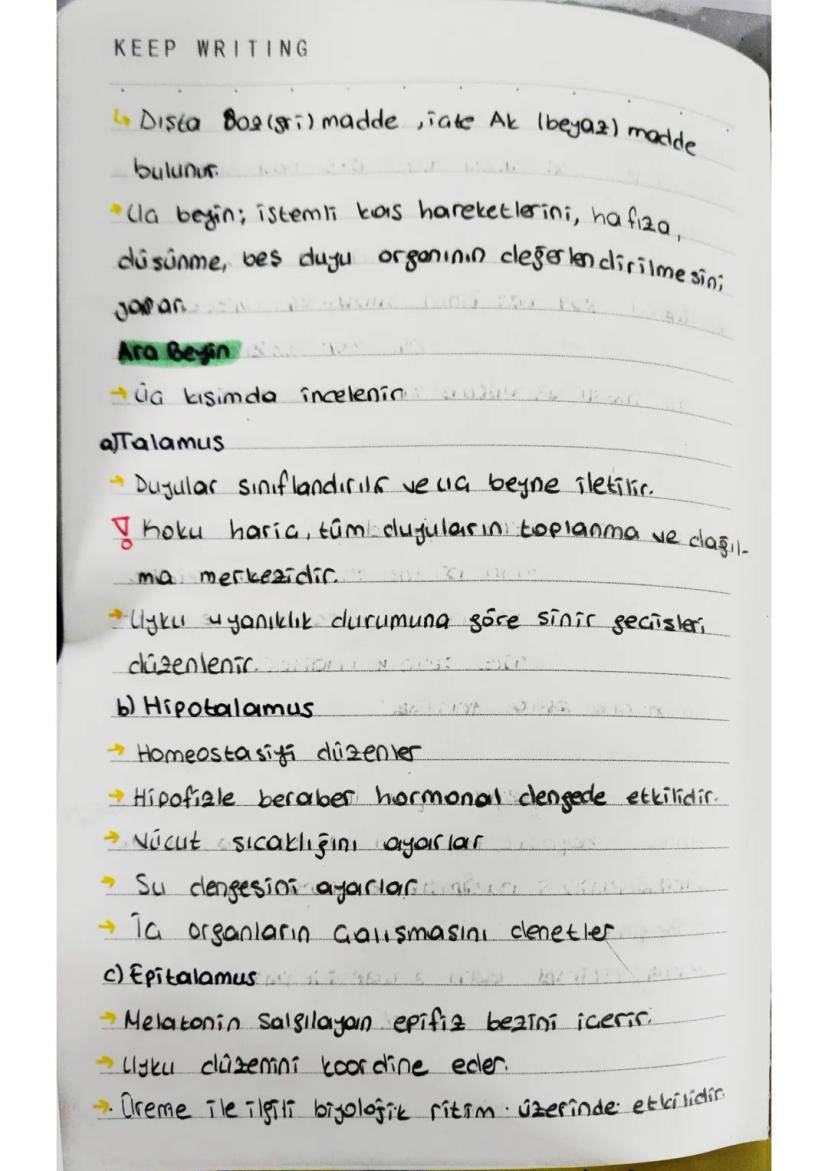 KEEP WRITING
↳ Dışta Boz(gri) madde, içte Ak (beyaz) madde
bulunur.
→ Uç beyin; istemli kas hareketlerini, hafıza,
düşünme, beş duyu organının değerlendirilmesini
yapar.
Ara Beyin
→ Üç kısımda incelenir
a) Talamus
→ Duyular sınıflandırılır ve uç beyne iletilir.
! Koku hariç, tüm duyuların toplanma ve dağıl-
ma merkezidir.
→ Uyku uyanıklık durumuna göre sinir geçişleri
düzenlenir.
b) Hipotalamus
→ Homeostasiyi düzenler
→ Hipofizle beraber hormonal dengede etkilidir.
→ Vücut sıcaklığını ayarlar
→ Su dengesini ayarlar
→ İç organların çalışmasını denetler
c) Epitalamus
→ Melatonin salgılayan epifiz bezini içerir.
→ Uyku düzenini koordine eder.
→ Üreme ile ilgili biyolojik ritim üzerinde etkilidir.